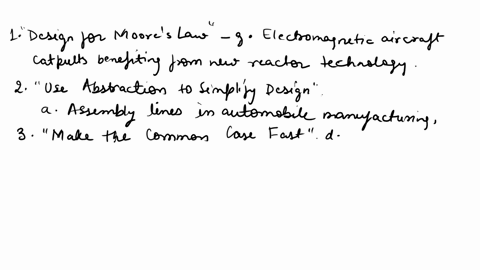 1. "Design for Moore's Law" - g. Electromagnetic aircraft
catpults benefiting from new reactor technology.
2. "Use Abstraction to Simplify Design".
a. Assembly lines in automobile manufacturing,
3. "Make the Common Case Fast". d.